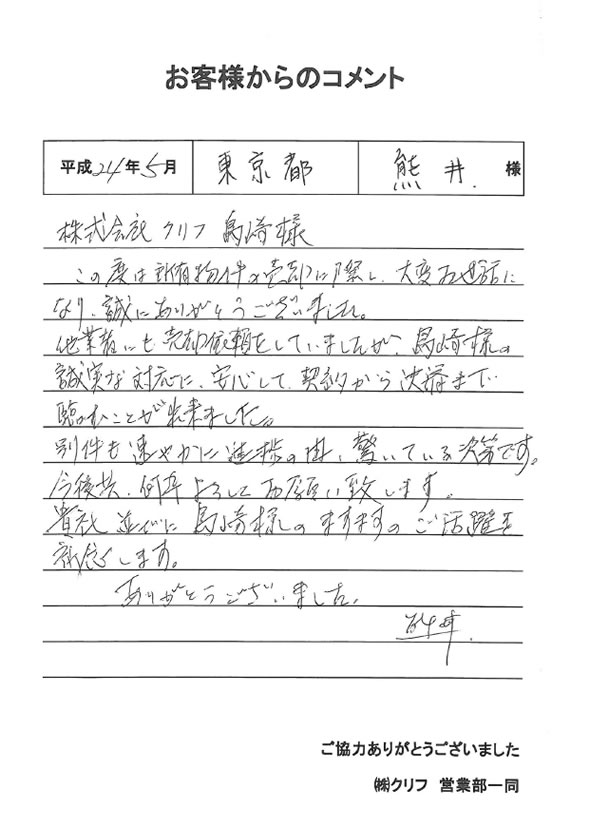 お客様からのコメント
平成24年5月 東京都 熊井 様
株式会社クリフ 島崎様
この度は所有物件の売却に際し、大変お世話に
なり、誠にありがとうございました。
他業者にも売却依頼をしていましたが、島崎様の
誠実な対応に、安心して、契約から決済まで
臨むことが出来ました。
別件も速やかに進捗の由、驚いている次第です。
今後共、何卒よろしくお願い致します。
貴社並びに島崎様のますますのご活躍を
祈念します。
ありがとうございました。
熊井
ご協力ありがとうございました
㈱クリフ 営業部一同